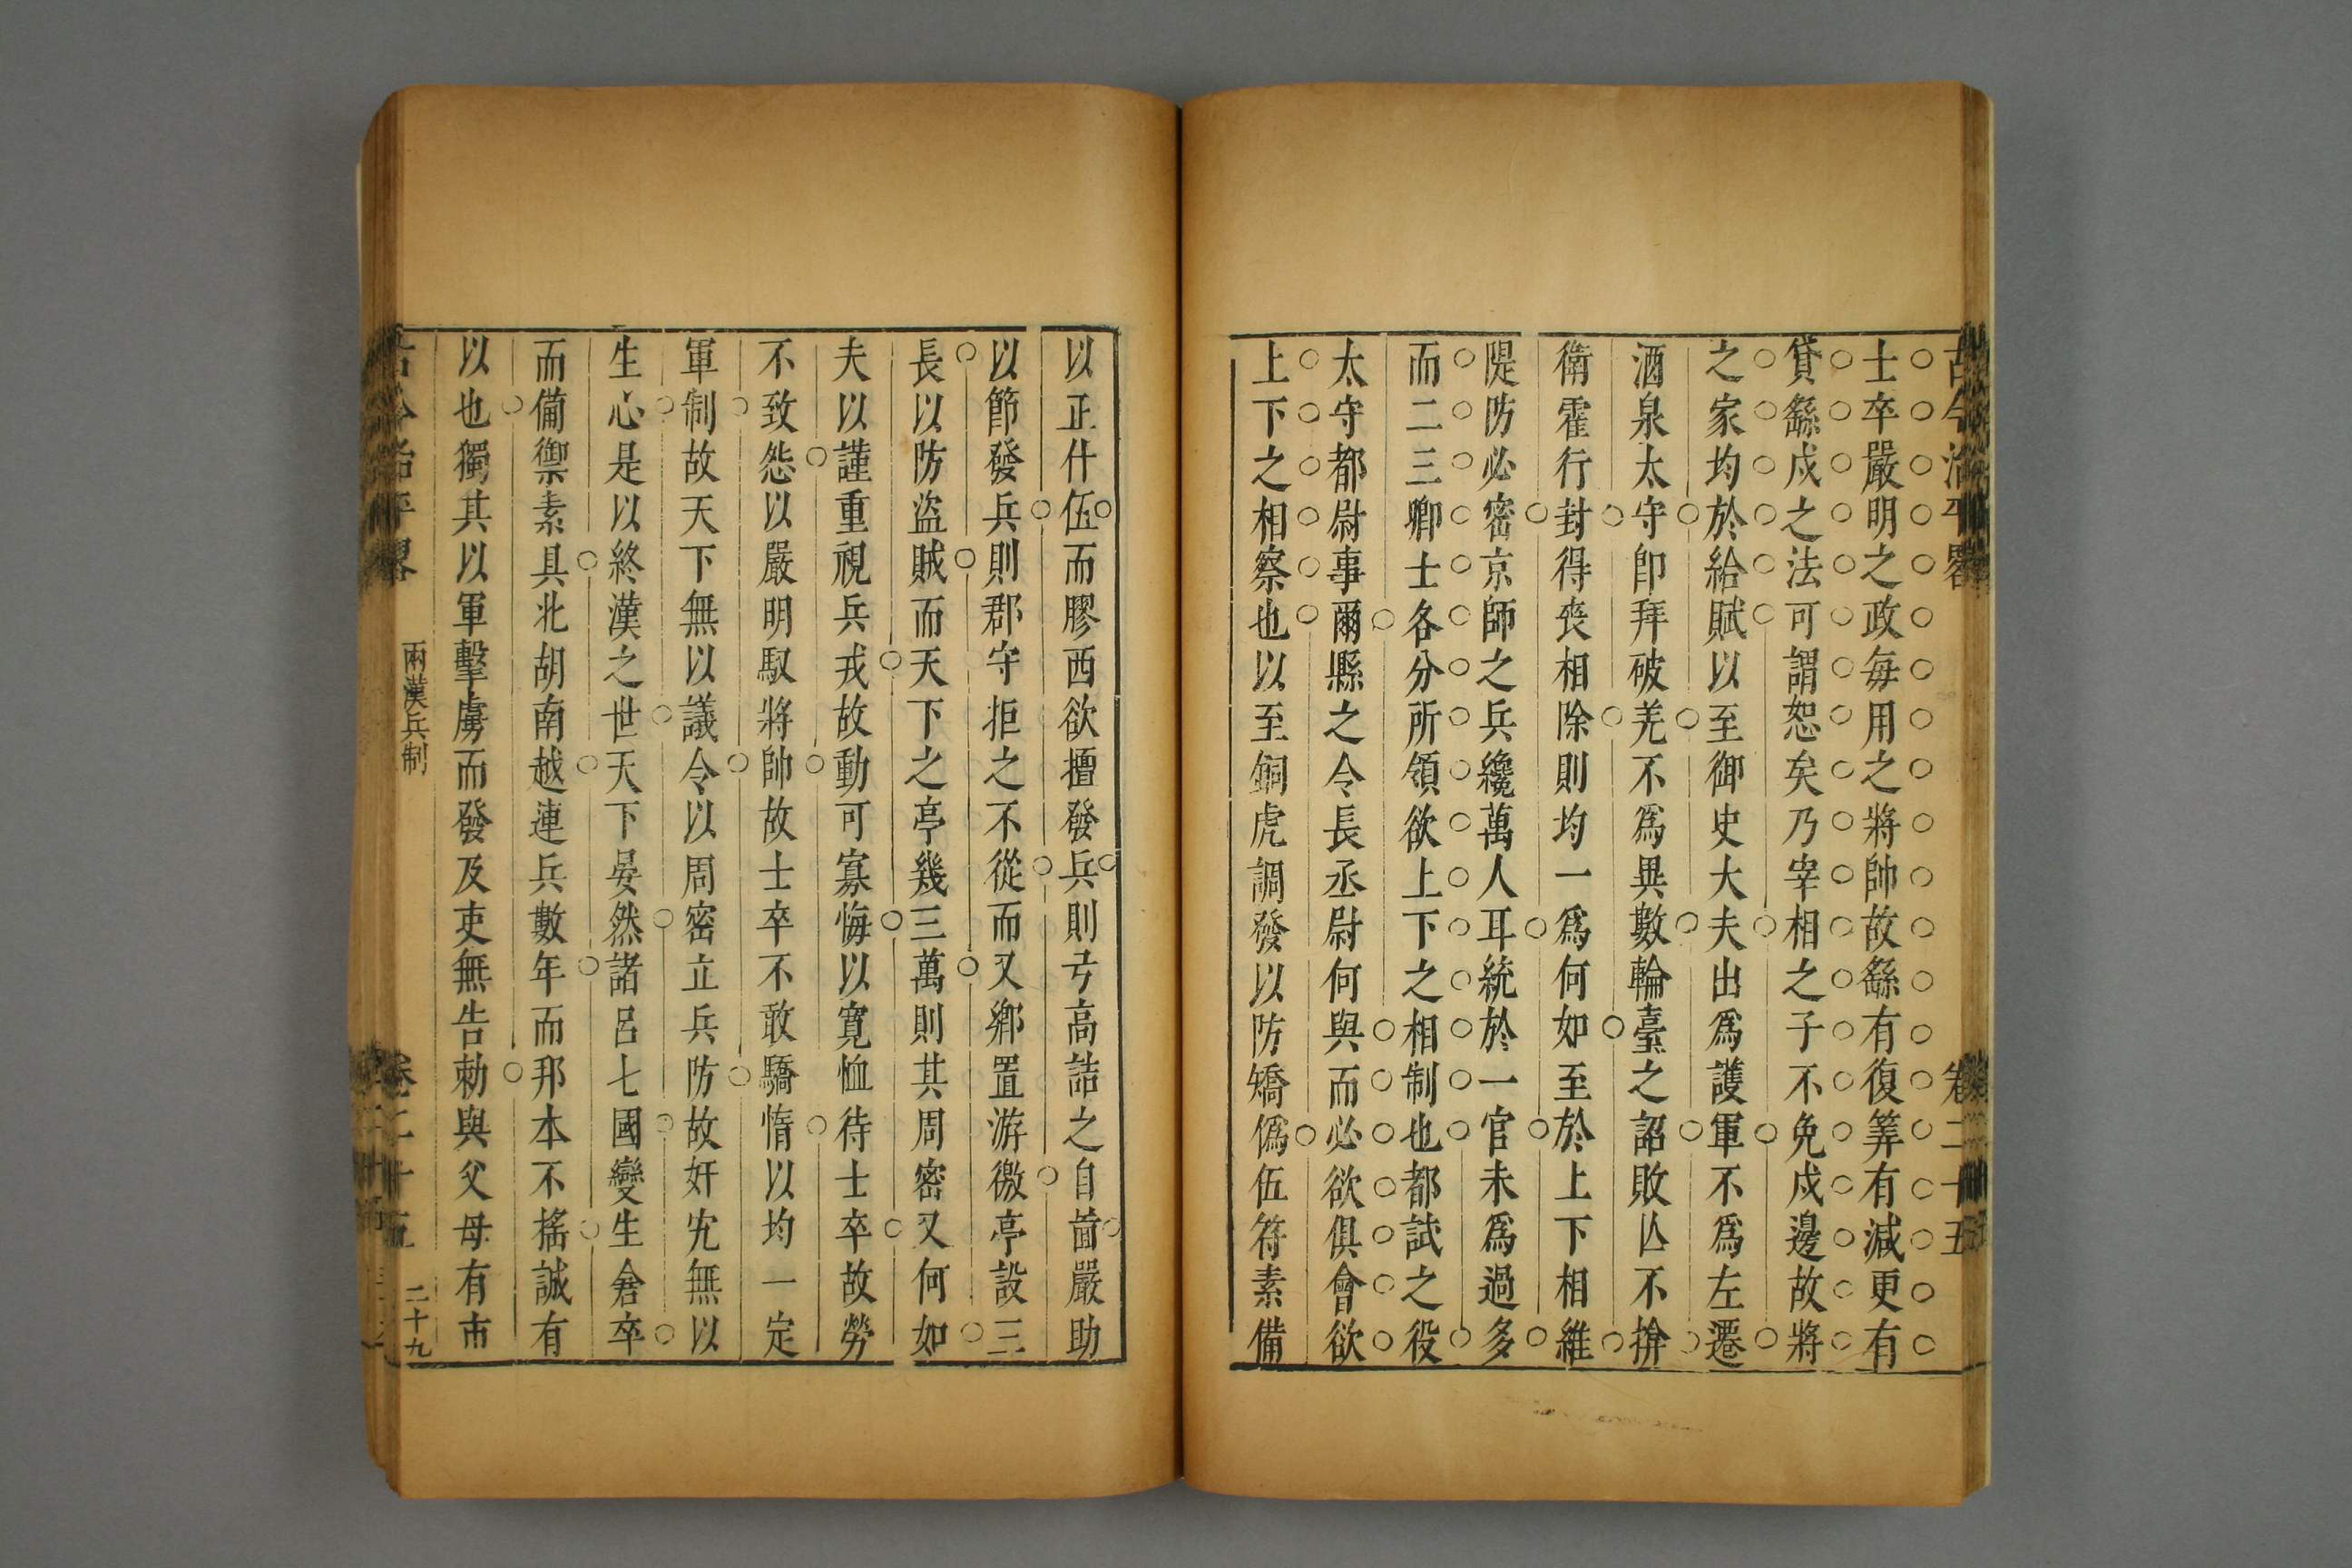 古今治平畧 卷二十五
士卒嚴明之政每用之將帥故繇有復筭有減更有
貸繇戍之法可謂恕矣乃宰相之子不免戍邊故將
之家均於給賦以至御史大夫出爲護軍不爲左遷
酒泉太守卽拜破羌不爲異數輪臺之詔敗亾不揜
衛霍行封得喪相除則均一爲何如至於上下相維
隄防必密京師之兵纔萬人耳統於一官未爲過多
而二三卿士各分所領欲上下之相制也都試之役
太守都尉事爾縣之令長丞尉何與而必欲俱會欲
上下之相察也以至銅虎調發以防矯僞伍符素備
以正什伍而膠西欲擅發兵則弓高詰之自啚嚴助
以節發兵則郡守拒之不從而又鄉置游徼亭設三
長以防盜賊而天下之亭幾三萬則其周密又何如
夫以謹重視兵戎故動可寡悔以寬恤待士卒故勞
不致怨以嚴明馭將帥故士卒不敢驕惰以均一定
軍制故天下無以議令以周密立兵防故奸宄無以
生心是以終漢之世天下晏然諸呂七國變生倉卒
而備禦素具北胡南越連兵數年而邦本不搖誠有
以也獨其以軍擊虜而發及吏無告勑與父母有市
古今治平畧 兩漢兵制 卷二十五 二十九